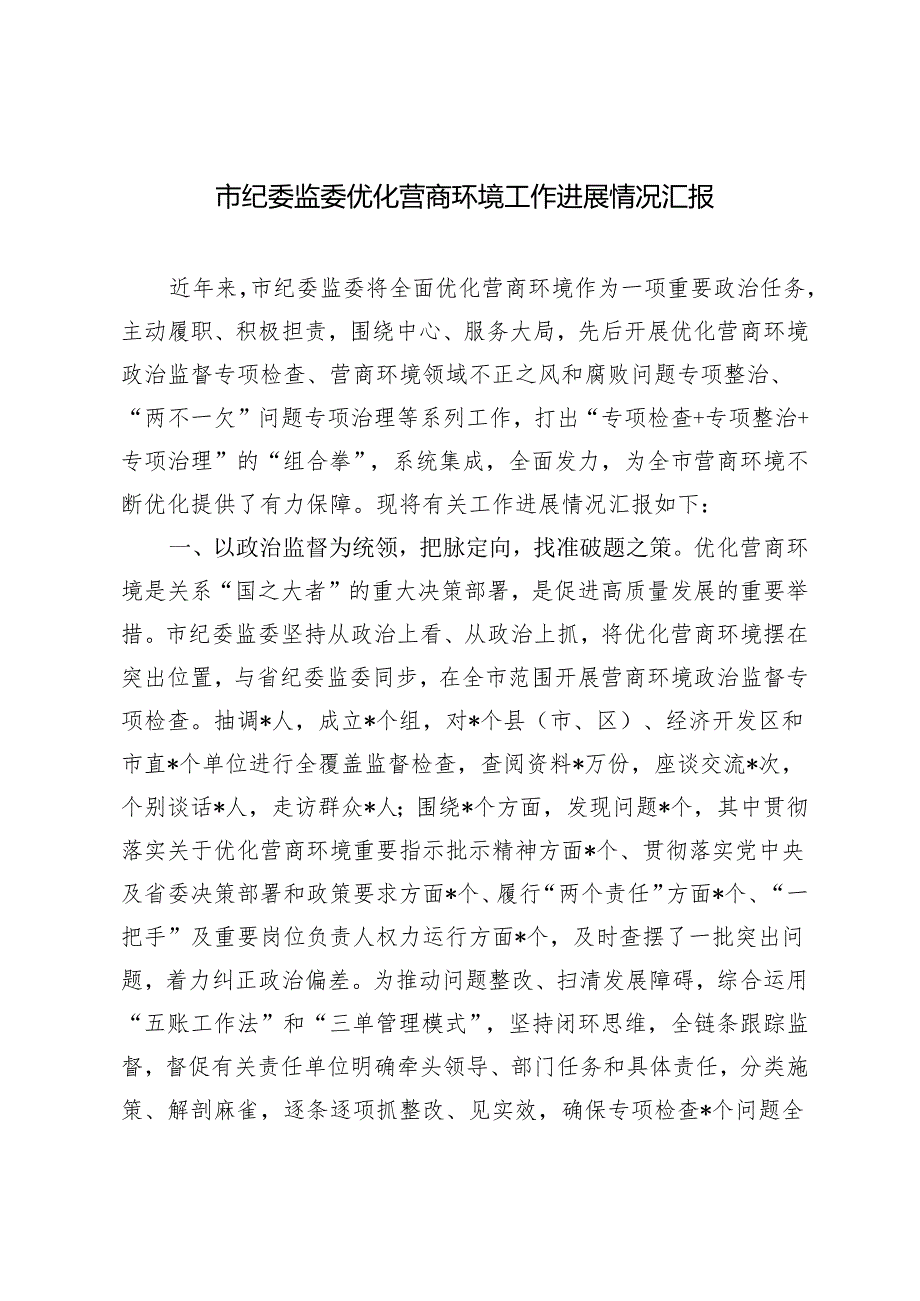 市纪委监委优化营商环境工作进展情况汇报
近年来，市纪委监委将全面优化营商环境作为一项重要政治任务，
主动履职、积极担责，围绕中心、服务大局，先后开展优化营商环境
政治监督专项检查、营商环境领域不正之风和腐败问题专项整治、
“两不一欠”问题专项治理等系列工作，打出“专项检查+专项整治+
专项治理”的“组合拳”，系统集成，全面发力，为全市营商环境不
断优化提供了有力保障。现将有关工作进展情况汇报如下：
一、以政治监督为统领，把脉定向，找准破题之策。优化营商环
境是关系“国之大者”的重大决策部署，是促进高质量发展的重要举
措。市纪委监委坚持从政治上看、从政治上抓，将优化营商环境摆在
突出位置，与省纪委监委同步，在全市范围开展营商环境政治监督专
项检查。抽调*人，成立*个组，对*个县（市、区）、经济开发区和
市直*个单位进行全覆盖监督检查，查阅资料*万份，座谈交流*次，
个别谈话*人，走访群众*人；围绕*个方面，发现问题*个，其中贯彻
落实关于优化营商环境重要指示批示精神方面*个、贯彻落实党中央
及省委决策部署和政策要求方面*个、履行“两个责任”方面*个、“一
把手”及重要岗位负责人权力运行方面*个，及时查摆了一批突出问
题，着力纠正政治偏差。为推动问题整改、扫清发展障碍，综合运用
“五账工作法”和“三单管理模式”，坚持闭环思维，全链条跟踪监
督，督促有关责任单位明确牵头领导、部门任务和具体责任，分类施
策、解剖麻雀，逐条逐项抓整改、见实效，确保专项检查*个问题全